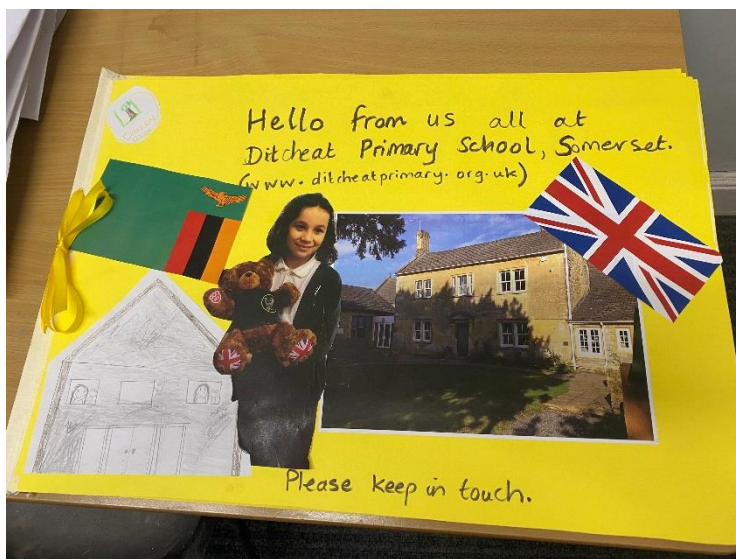 Hello from us all at
Ditcheat Primary School, Somerset.
(www.ditcheatprimary.org.uk)
Please keep in touch.